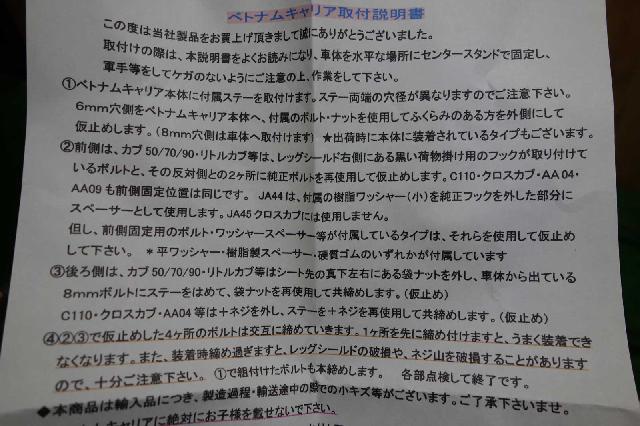 ベトナムキャリア取付説明書
この度は当社製品をお買上げ頂きまして誠にありがとうございました。
取付けの際は、本説明書をよくお読みになり、車体を水平な場所にセンタースタンドで固定し、
軍手等をしてケガのないようにご注意の上、作業をして下さい。
①ベトナムキャリア本体に付属ステーを取付けます。ステー両端の穴径が異なりますのでご注意下さい。
6mm穴側をベトナムキャリア本体へ、付属のボルト・ナットを使用してふくらみのある方を外側にして
仮止めします。(8mm穴側は車体へ取付けます) ★出荷時に本体に装着されているタイプもございます。
②前側は、カブ50/70/90・リトルカブ等は、レッグシールド右側にある黒い荷物掛け用のフックが取り付けて
いるボルトと、その反対側との2ケ所に純正ボルトを再使用して仮止めします。C110・クロスカブ・AA04・
AA09も前側固定位置は同じです。 JA44は、付属の樹脂ワッシャー(小)を純正フックを外した部分に
スペーサーとして使用します。JA45クロスカブには使用しません。
但し、前側固定用のボルト・ワッシャースペーサー等が付属しているタイプは、それらを使用して仮止め
して下さい。 *平ワッシャー・樹脂製スペーサー・硬質ゴムのいずれかが付属しています
③後ろ側は、カブ50/70/90・リトルカブ等はシート先の真下左右にある袋ナットを外し、車体から出ている
8mmボルトにステーをはめて、袋ナットを再使用して共締めします。(仮止め)
C110・クロスカブ・AA04等は+ネジを外し、ステーを+ネジを再使用して共締めします。(仮止め)
④②③で仮止めした4ヶ所のボルトは交互に締めていきます。1ヶ所を先に締め付けますと、うまく装着でき
なくなります。また、装着時締め過ぎますと、レッグシールドの破損や、ネジ山を破損することがあります
ので、十分ご注意下さい。 ①で組付けたボルトも本締めします。 各部点検して終了です。
◆本商品は輸入品につき、製造過程・輸送途中の際での小キズ等がございます。ご了承下さいませ。
キャリアに絶対にお子様を載せないで下さい。